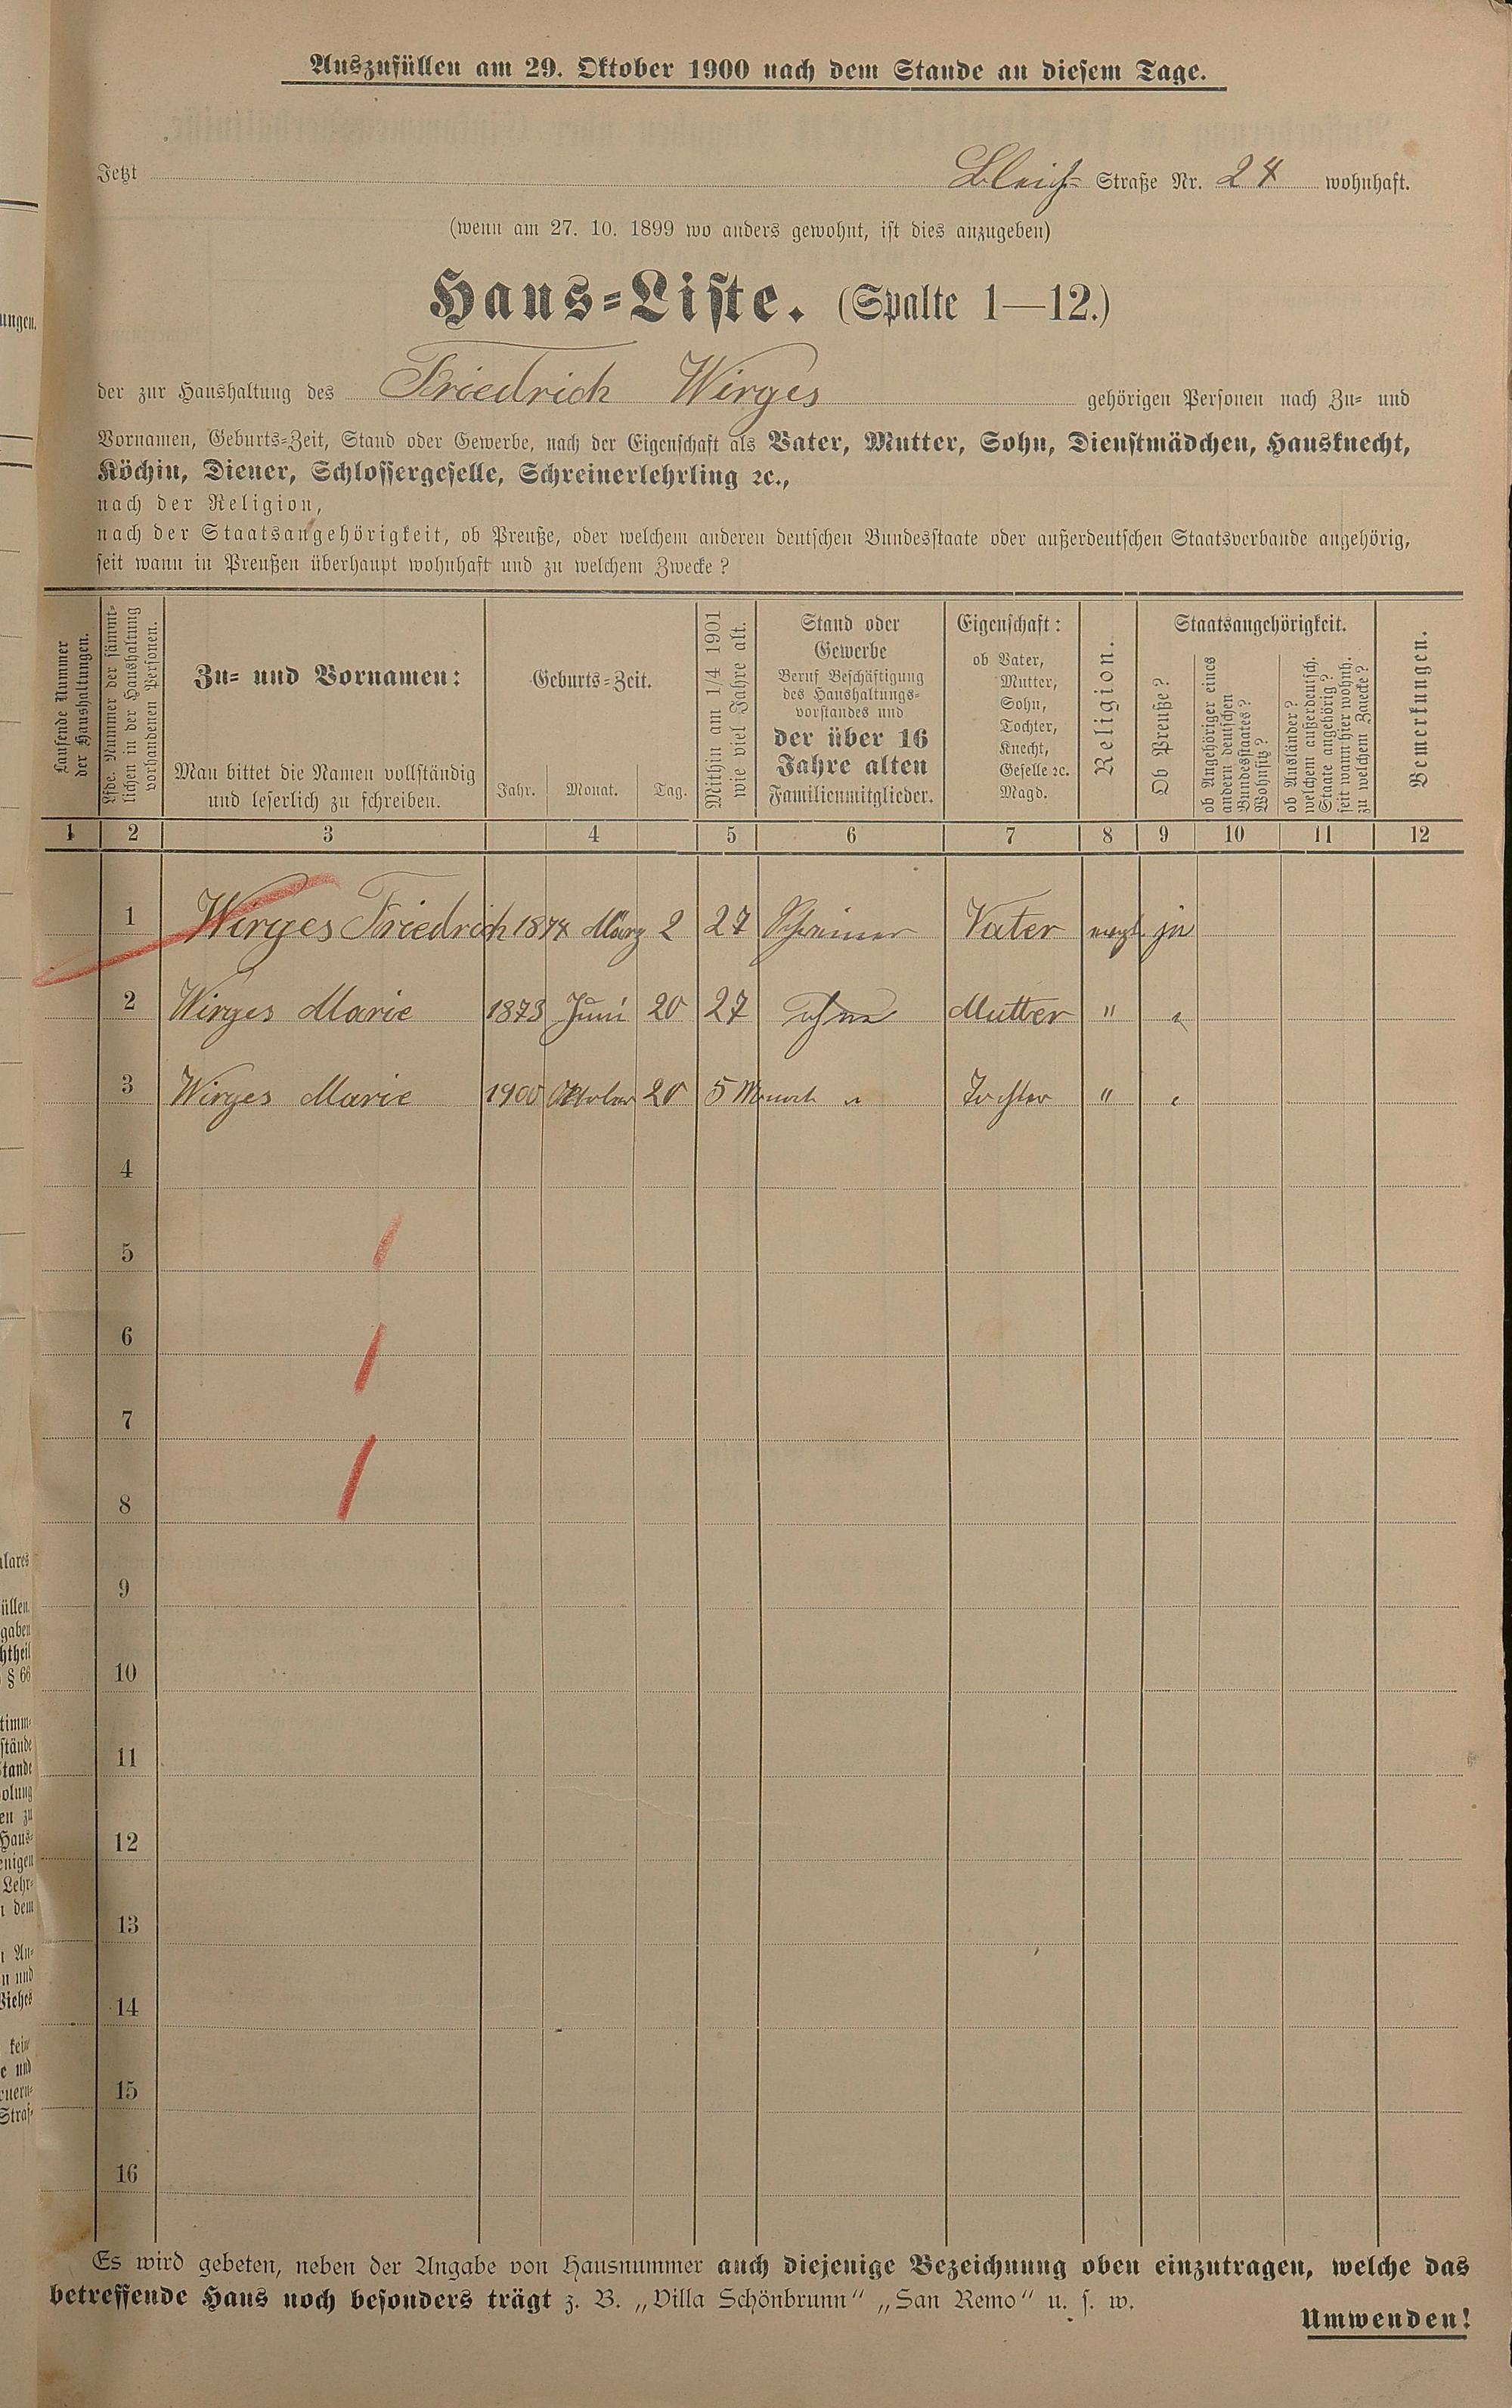 Auszufüllen am 29. Oktober 1900 nach dem Stande an diesem Tage.
Jetzt Bleich= Straße Nr. 24 wohnhaft.
(wenn am 27. 10. 1899 wo anders gewohnt, ist dies anzugeben)
Haus=Liste. (Spalte 1—12.)
der zur Haushaltung des Friedrich Wirges gehörigen Personen nach Zu= und
Vornamen, Geburts=Zeit, Stand oder Gewerbe, nach der Eigenschaft als Vater, Mutter, Sohn, Dienstmädchen, Hausknecht,
Köchin, Diener, Schlossergeselle, Schreinerlehrling ꝛc.,
nach der Religion,
nach der Staatsangehörigkeit, ob Preuße, oder welchem anderen deutschen Bundesstaate oder außerdeutschen Staatsverbande angehörig,
seit wann in Preußen überhaupt wohnhaft und zu welchem Zwecke?
Laufende Nummer
der Haushaltungen.
Lfde. Nummer der sämmt=
lichen in der Haushaltung
vorhandenen Personen.
Zu= und Vornamen:
Man bittet die Namen vollständig
und leserlich zu schreiben.
Geburts=Zeit.
Jahr. Monat. Tag.
Mithin am 1/4 1901
wie viel Jahre alt.
Stand oder
Gewerbe
Beruf Beschäftigung
des Haushaltungs=
vorstandes und
der über 16
Jahre alten
Familienmitglieder.
Eigenschaft:
ob Vater,
Mutter,
Sohn,
Tochter,
Knecht,
Geselle ꝛc.
Magd.
Religion.
Staatsangehörigkeit.
Ob Preuße?
ob Angehöriger eines
andern deutschen
Bundesstaates?
Wohnsitz?
ob Ausländer?
welchem außerdeutsch.
Staate angehörig?
seit wann hier wohnh.
zu welchem Zwecke?
Bemerkungen.
1 2 3 4 5 6 7 8 9 10 11 12
1 Wirges Friedrich 1874 März 2 27 Schreiner Vater evgl. ja
2 Wirges Marie 1873 Juni 20 27 Mutter " "
3 Wirges Marie 1900 Oktober 20 5 Monat " Tochter " "
4
5
6
7
8
9
10
11
12
13
14
15
16
Es wird gebeten, neben der Angabe von Hausnummer auch diejenige Bezeichnung oben einzutragen, welche das
betreffende Haus noch besonders trägt z. B. „Villa Schönbrunn" „San Remo" u. s. w.
Umwenden!